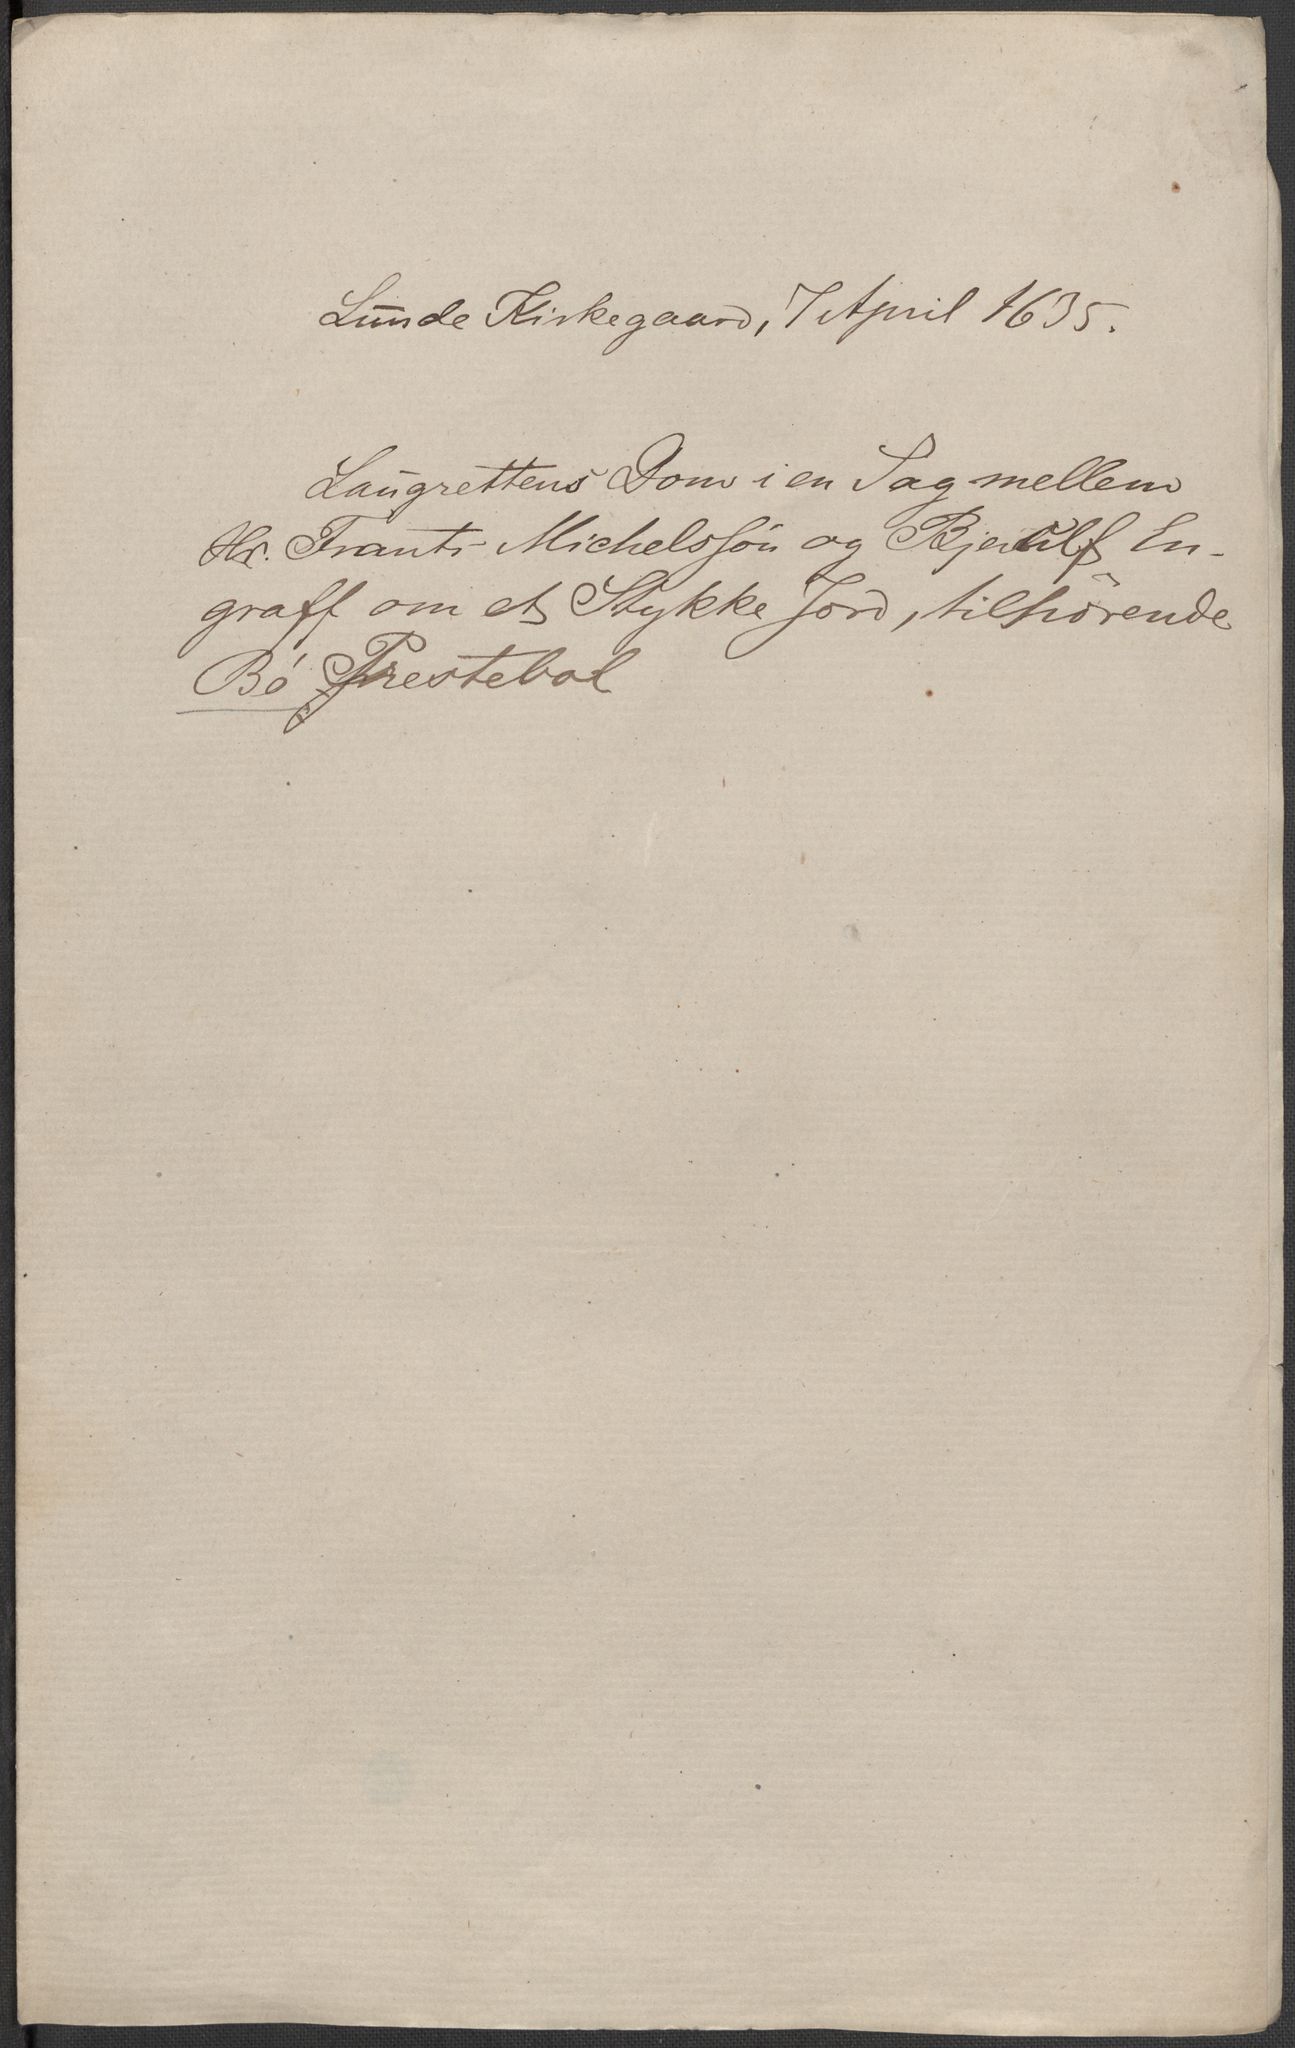 Lunde Kirkegaard, 7 April 1635.
Laugrettens Dom i en Sag mellem
Hr. Frants Michelssön og Bjerulf En-
graff om et Stykke Jord, tilhörende
Bö Prestebol